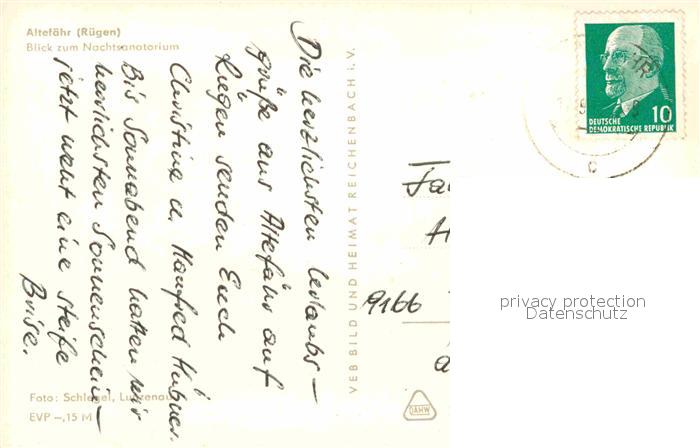 Altefähr (Rügen)
Blick zum Nachtsanatorium
Die herzlichsten Urlaubs-
grüße aus Altefähr auf
Rügen senden Euch
Christina u. Manfred Hübner.
Bis Sonnabend hatten wir
herrlichsten Sonnenschein –
jetzt weht eine steife
Brise.
Foto: Schlegel, Lunzenau
EVP –,15 M
VEB BILD UND HEIMAT REICHENBACH i. V.
DAHW
10
DEUTSCHE
DEMOKRATISCHE REPUBLIK
9166
privacy protection
Datenschutz